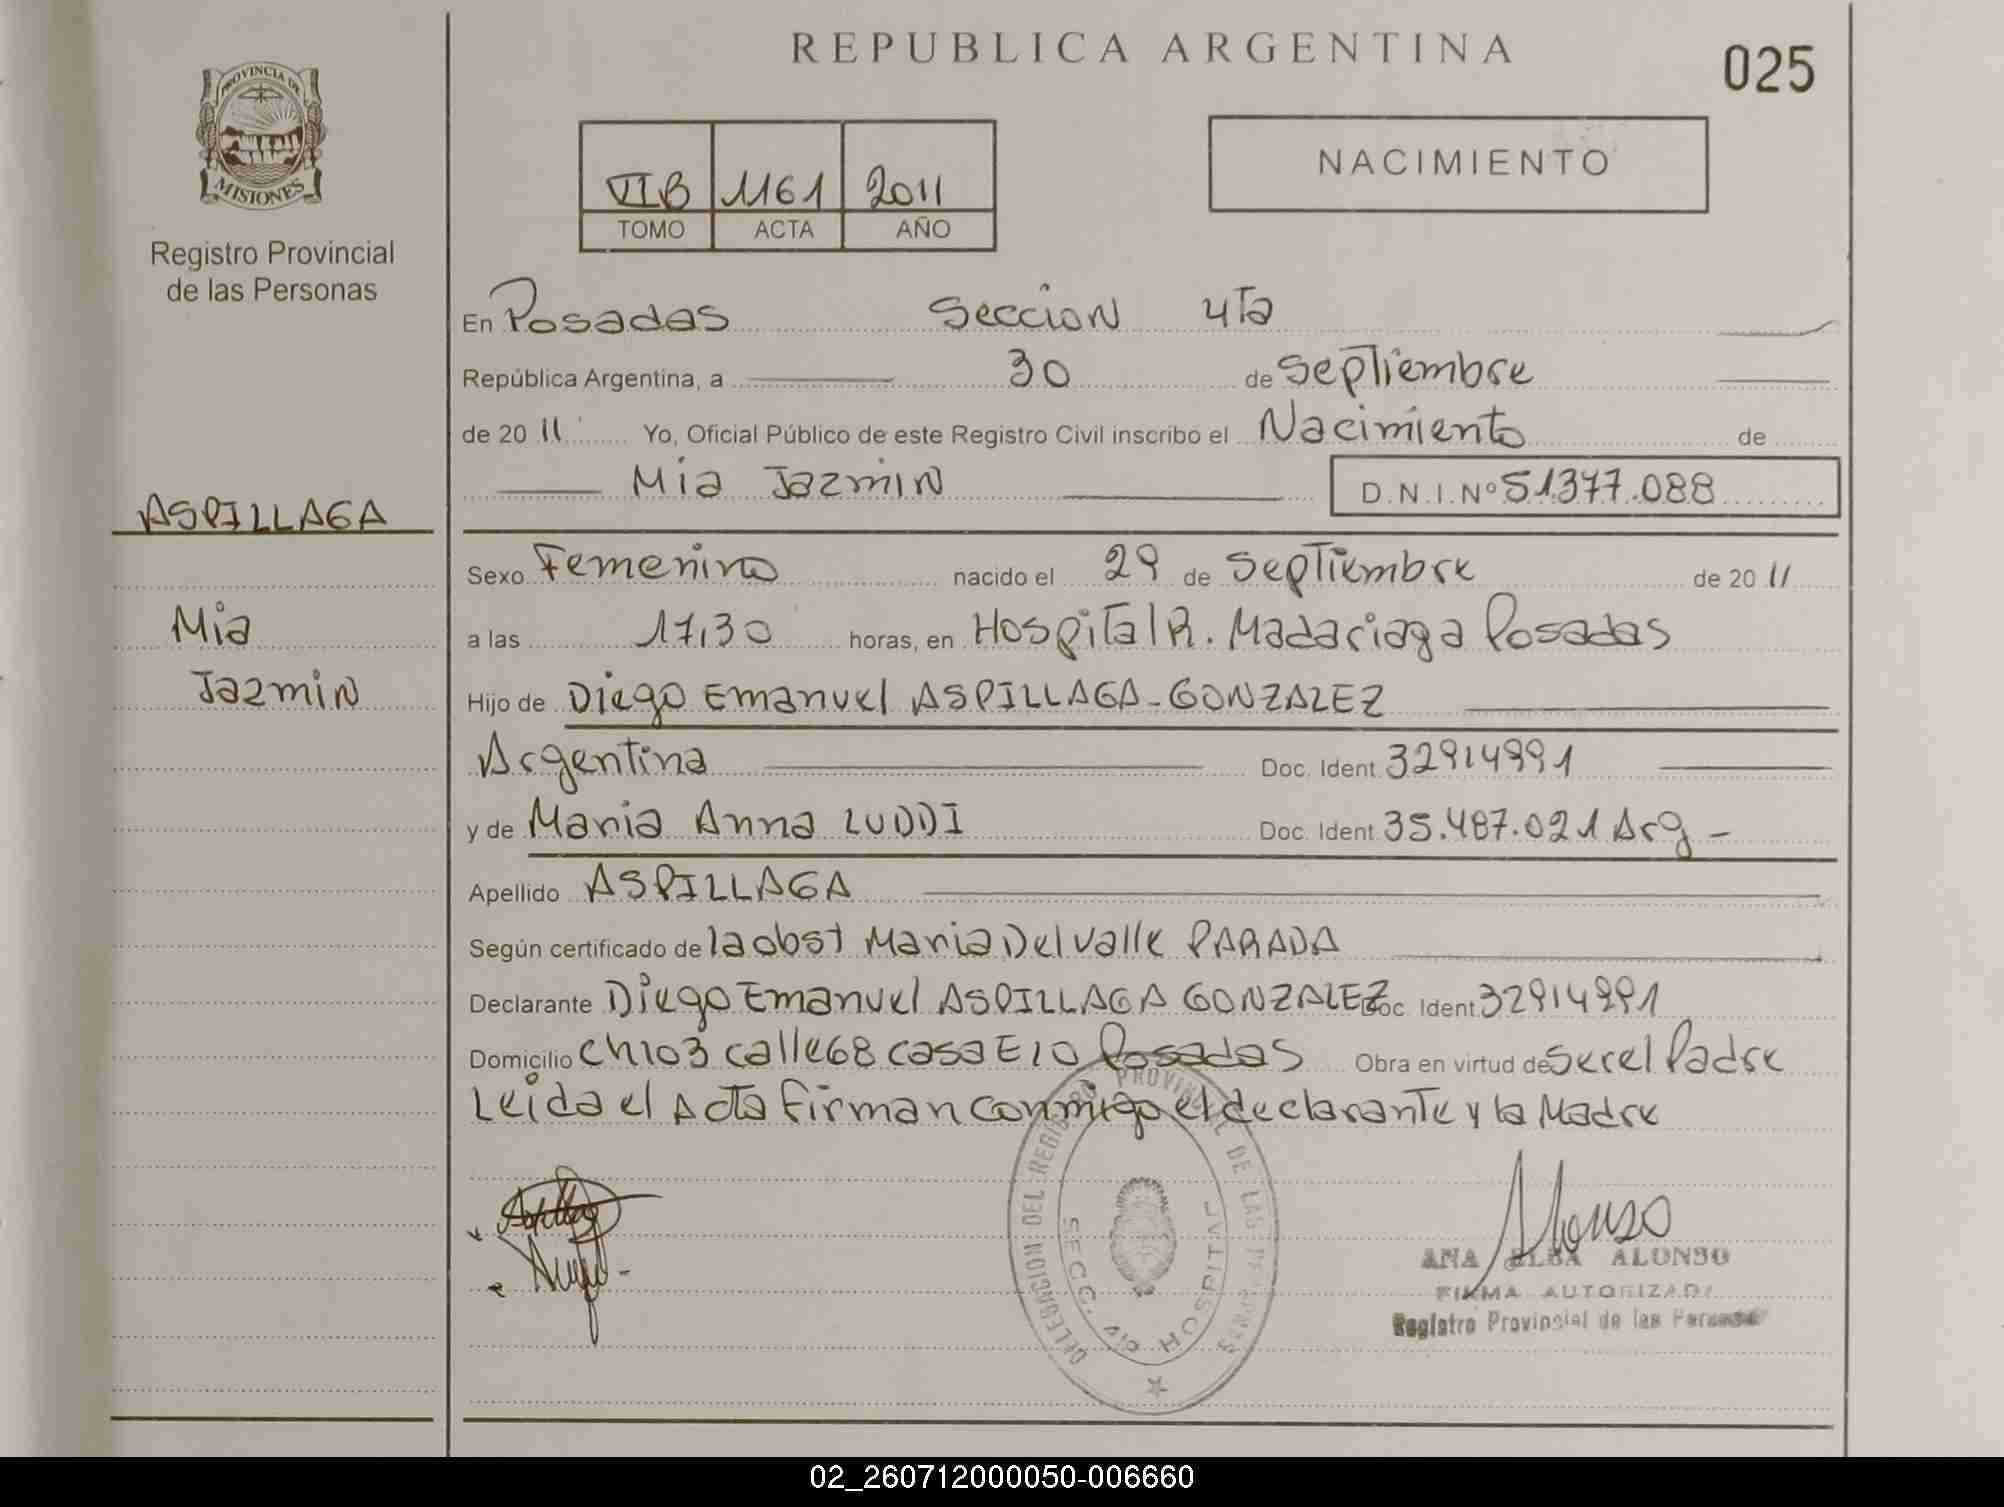 REPUBLICA ARGENTINA
025
PROVINCIA DE
MISIONES
Registro Provincial
de las Personas
VI B 1161 2011
TOMO ACTA AÑO
NACIMIENTO
En Posadas Seccion 4Ta
República Argentina, a 30 de Septiembre
de 2011 Yo, Oficial Público de este Registro Civil inscribo el Nacimiento de
Mia Jazmin D.N.I.Nº 51.377.088
ASPILLAGA
Mia
Jazmin
Sexo Femenino nacido el 29 de Septiembre de 2011
a las 17,30 horas, en Hospital R. Madariaga Posadas
Hijo de Diego Emanuel ASPILLAGA-GONZALEZ
Argentina Doc. Ident. 32914991
y de Maria Anna LUDDI Doc. Ident. 35.487.021 Arg -
Apellido ASPILLAGA
Según certificado de la obst Maria Del Valle PARADA
Declarante Diego Emanuel ASPILLAGA GONZALEZ Doc. Ident. 32914991
Domicilio CH103 calle68 casa E10 Posadas Obra en virtud de Ser el Padre
Leida el Acta Firman conmigo el declarante y la Madre
DELEGACION DEL REGISTRO PROVINCIAL DE LAS PERSONAS
SECC. HOSPITAL
Alonso
ANA ELBA ALONSO
FIRMA AUTORIZADA
Registro Provincial de las Personas
02_260712000050-006660